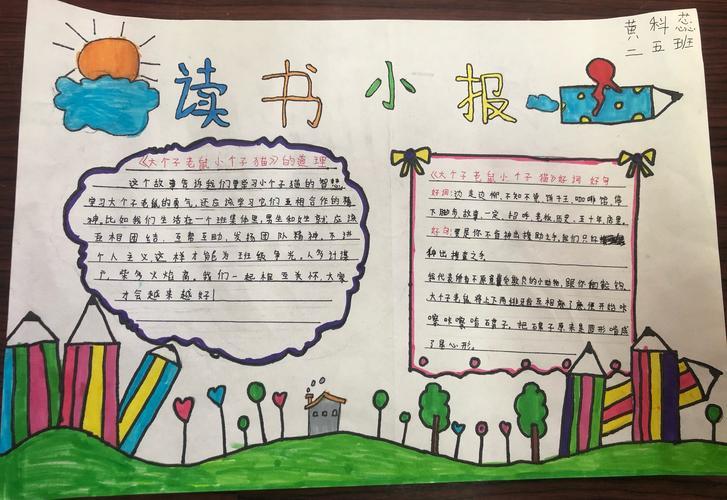 黄科蕊
二五班
读书小报
《大个子老鼠小个子猫》的道理
这个故事告诉我们要学习小个子猫的智慧
学习大个子老鼠的勇气,还应该学习它们互相合作的精
神。比如我们生活在一个班集体里,男生和女生就应该
互相团结、互帮互助、发扬团队精神,不进
个人主义这样才能为班级争光,人多计谋
广,柴多火焰高,我们一起相互关怀,大家
才会越来越好!
《大个子老鼠小个子猫》好词 好句
好词:边走边聊、不知不觉、饼干王、咖啡馆、停
下脚步、故事、一定、招呼、老板、历史、五十年、店里。
好句:要是你不肯伸出援助之手,我们只好
伸出捅查之手
大个子老鼠将上下两排牙齿互相磨了磨,便开始咔
嚓咔嚓啃石磨子,把石磨子原来是圆形啃成
了星心形。